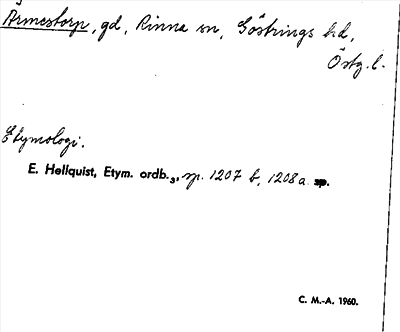 Ärnestorp, gd, Rinna sn, Göstrings hd,
Östg. l.
Etymologi.
E. Hellquist, Etym. ordb.₃, sp. 1207 b, 1208 a. sp.
C. M.-A. 1960.